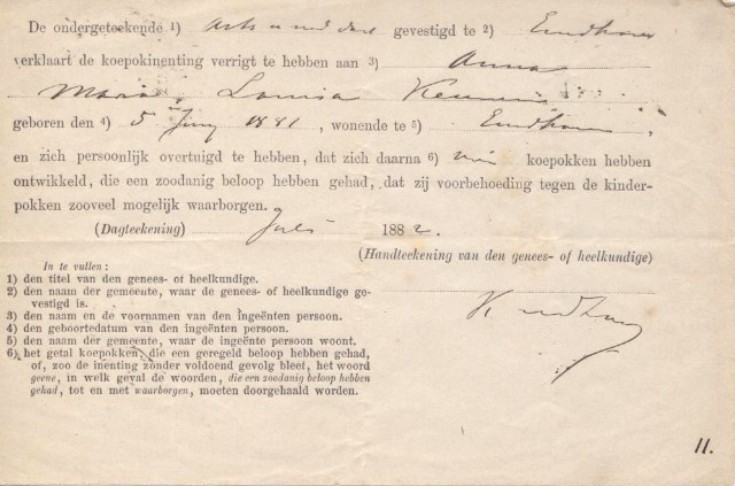 De ondergeteekende 1) Arts gevestigd te 2) Eindhoven
verklaart de koepokinenting verrigt te hebben aan 3) Anna
Maria Louisa
geboren den 4) 5 Juny 1881, wonende te 5) Eindhoven,
en zich persoonlijk overtuigd te hebben, dat zich daarna 6) koepokken hebben
ontwikkeld, die een zoodanig beloop hebben gehad, dat zij voorbehoeding tegen de kinder-
pokken zooveel mogelijk waarborgen.
(Dagteekening) Juli 1882.
(Handteekening van den genees- of heelkundige)
In te vullen:
1) den titel van den genees- of heelkundige.
2) den naam der gemeente, waar de genees- of heelkundige ge-
vestigd is.
3) den naam en de voornamen van den ingeënten persoon.
4) den geboortedatum van den ingeënten persoon.
5) den naam der gemeente, waar de ingeënte persoon woont.
6) het getal koepokken, die een geregeld beloop hebben gehad,
of, zoo de inenting zonder voldoend gevolg bleef, het woord
geene, in welk geval de woorden, die een zoodanig beloop hebben
gehad, tot en met waarborgen, moeten doorgehaald worden.
11.